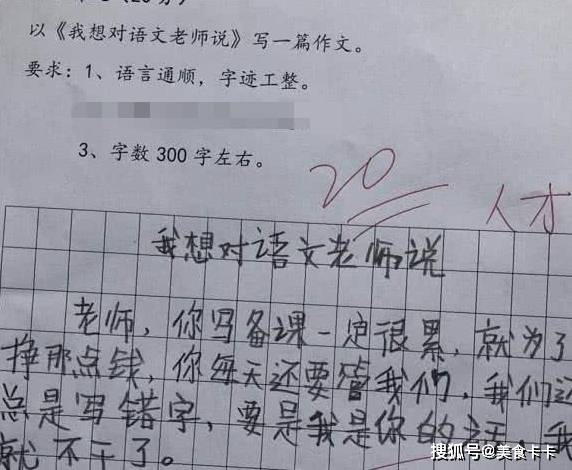 以《我想对语文老师说》写一篇作文。
要求：1、语言通顺，字迹工整。
3、字数300字左右。
20
人才
我想对语文老师说
老师，你写备课一定很累，就为了
挣那点钱，你每天还要管我们，我们还
总是写错字，要是我是你的话，我
就不干了。
搜狐号@美食卡卡